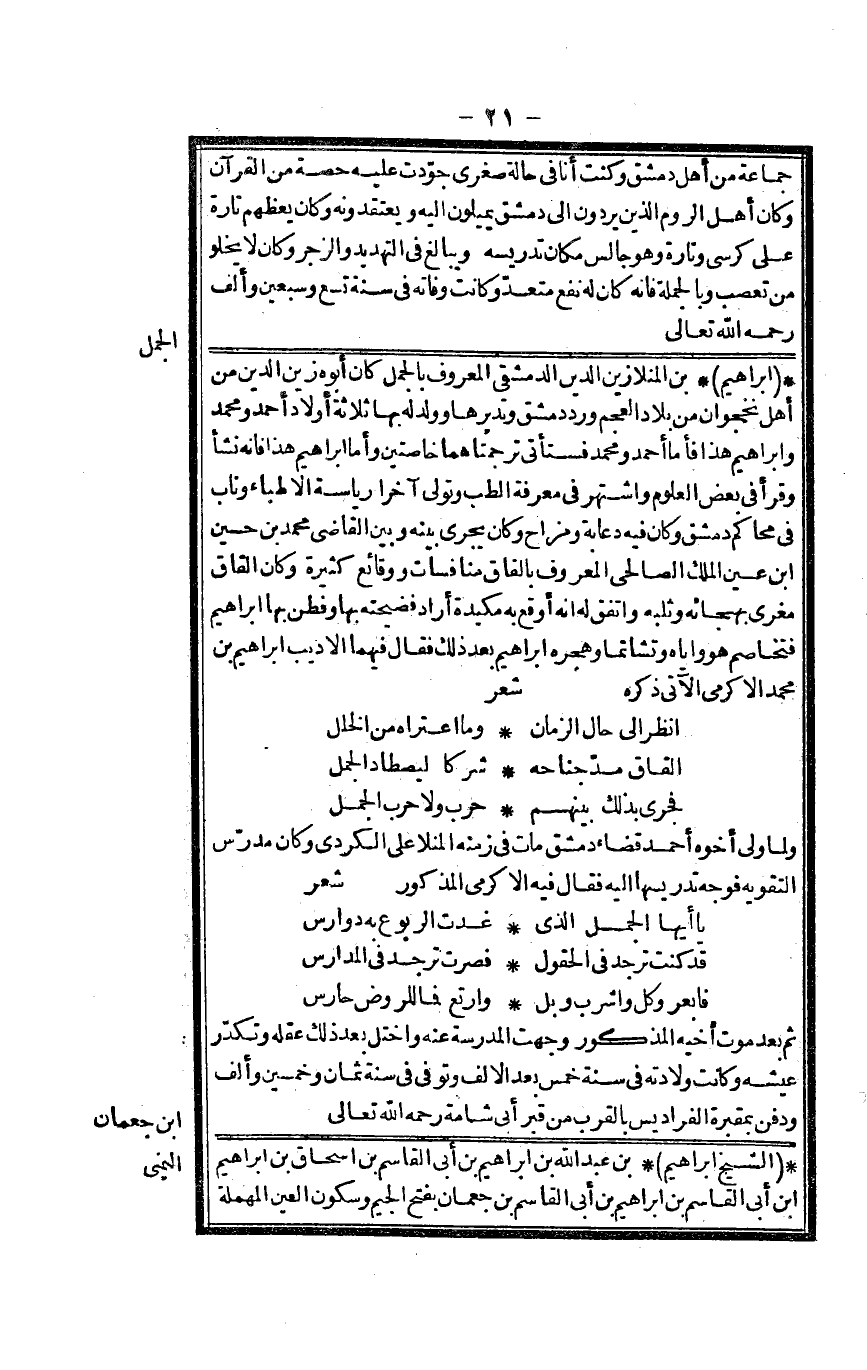 - ٢١ -
جماعة من أهل دمشق وكنت أنا في حالة صغرى جوّدت عليه حصة من القرآن
وكان أهل الروم الذين يردون الى دمشق يميلون اليه ويعتقدونه وكان يعظهم تارة
على كرسى وتارة وهو جالس مكان تدريسه ويبالغ فى التهديد والزجر وكان لا يخلو
من تعصب وبالجملة فانه كان له نفع متعدّ وكانت وفاته فى سنة تسع وسبعين وألف
رحمه الله تعالى
الجمل
*(ابراهيم)* بن المنلا زين الدين الدمشقى المعروف بالجمل كان أبوه زين الدين من
أهل نخجوان من بلاد العجم ورد دمشق وتديرها وولد له بها ثلاثة أولاد أحمد ومحمد
وابراهيم هذا فأما أحمد ومحمد فستأتى ترجمتاهما خاصتين وأما ابراهيم هذا فانه نشأ
وقرأ فى بعض العلوم واشتهر فى معرفة الطب وتولى آخرا رياسة الاطباء وناب
فى محاكم دمشق وكان فيه دعابة ومزاح وكان يجرى بينه وبين القاضى محمد بن حسين
ابن عين الملك الصالحى المعروف بالقاق منافسات ووقائع كثيرة وكان القاق
مغرى بهجائه وثلبه واتفق له انه أوقع به مكيدة أراد فضيحته بها وفطن بها ابراهيم
فتخاصم هو واياه وتشاتما وهجره ابراهيم بعد ذلك فقال فيهما الاديب ابراهيم بن
محمد الاكرمى الآتى ذكره شعر
انظر الى حال الزمان * وما اعتراه من الخلل
القاق مدّ جناحه * شركا ليصطاد الجمل
فجرى بذلك بينهم * حرب ولا حرب الجمل
ولما ولى أخوه أحمد قضاء دمشق مات فى زمنه المنلا على الكردى وكان مدرّس
التقويه فوجه تدريسها اليه فقال فيه الاكرمى المذكور شعر
يا أيها الجمل الذى * غدت الربوع به دوارس
قد كنت ترجد فى الحقول * فصرت ترجد فى المدارس
فابعر وكل واشرب وبل * وارتع فما للروض حارس
ثم بعد موت أخيه المذكور وجهت المدرسة عنه واختل بعد ذلك عقله وتكدّر
عيشه وكانت ولادته فى سنة خمس بعد الالف وتوفى فى سنة ثمان وخمسين وألف
ودفن بمقبرة الفراديس بالقرب من قبر أبى شامة رحمه الله تعالى
ابن جعمان
اليمنى
*(الشيخ ابراهيم)* بن عبد الله بن ابراهيم بن أبى القاسم بن اسحاق بن ابراهيم
ابن أبى القاسم بن ابراهيم بن أبى القاسم بن جعمان بفتح الجيم وسكون العين المهملة